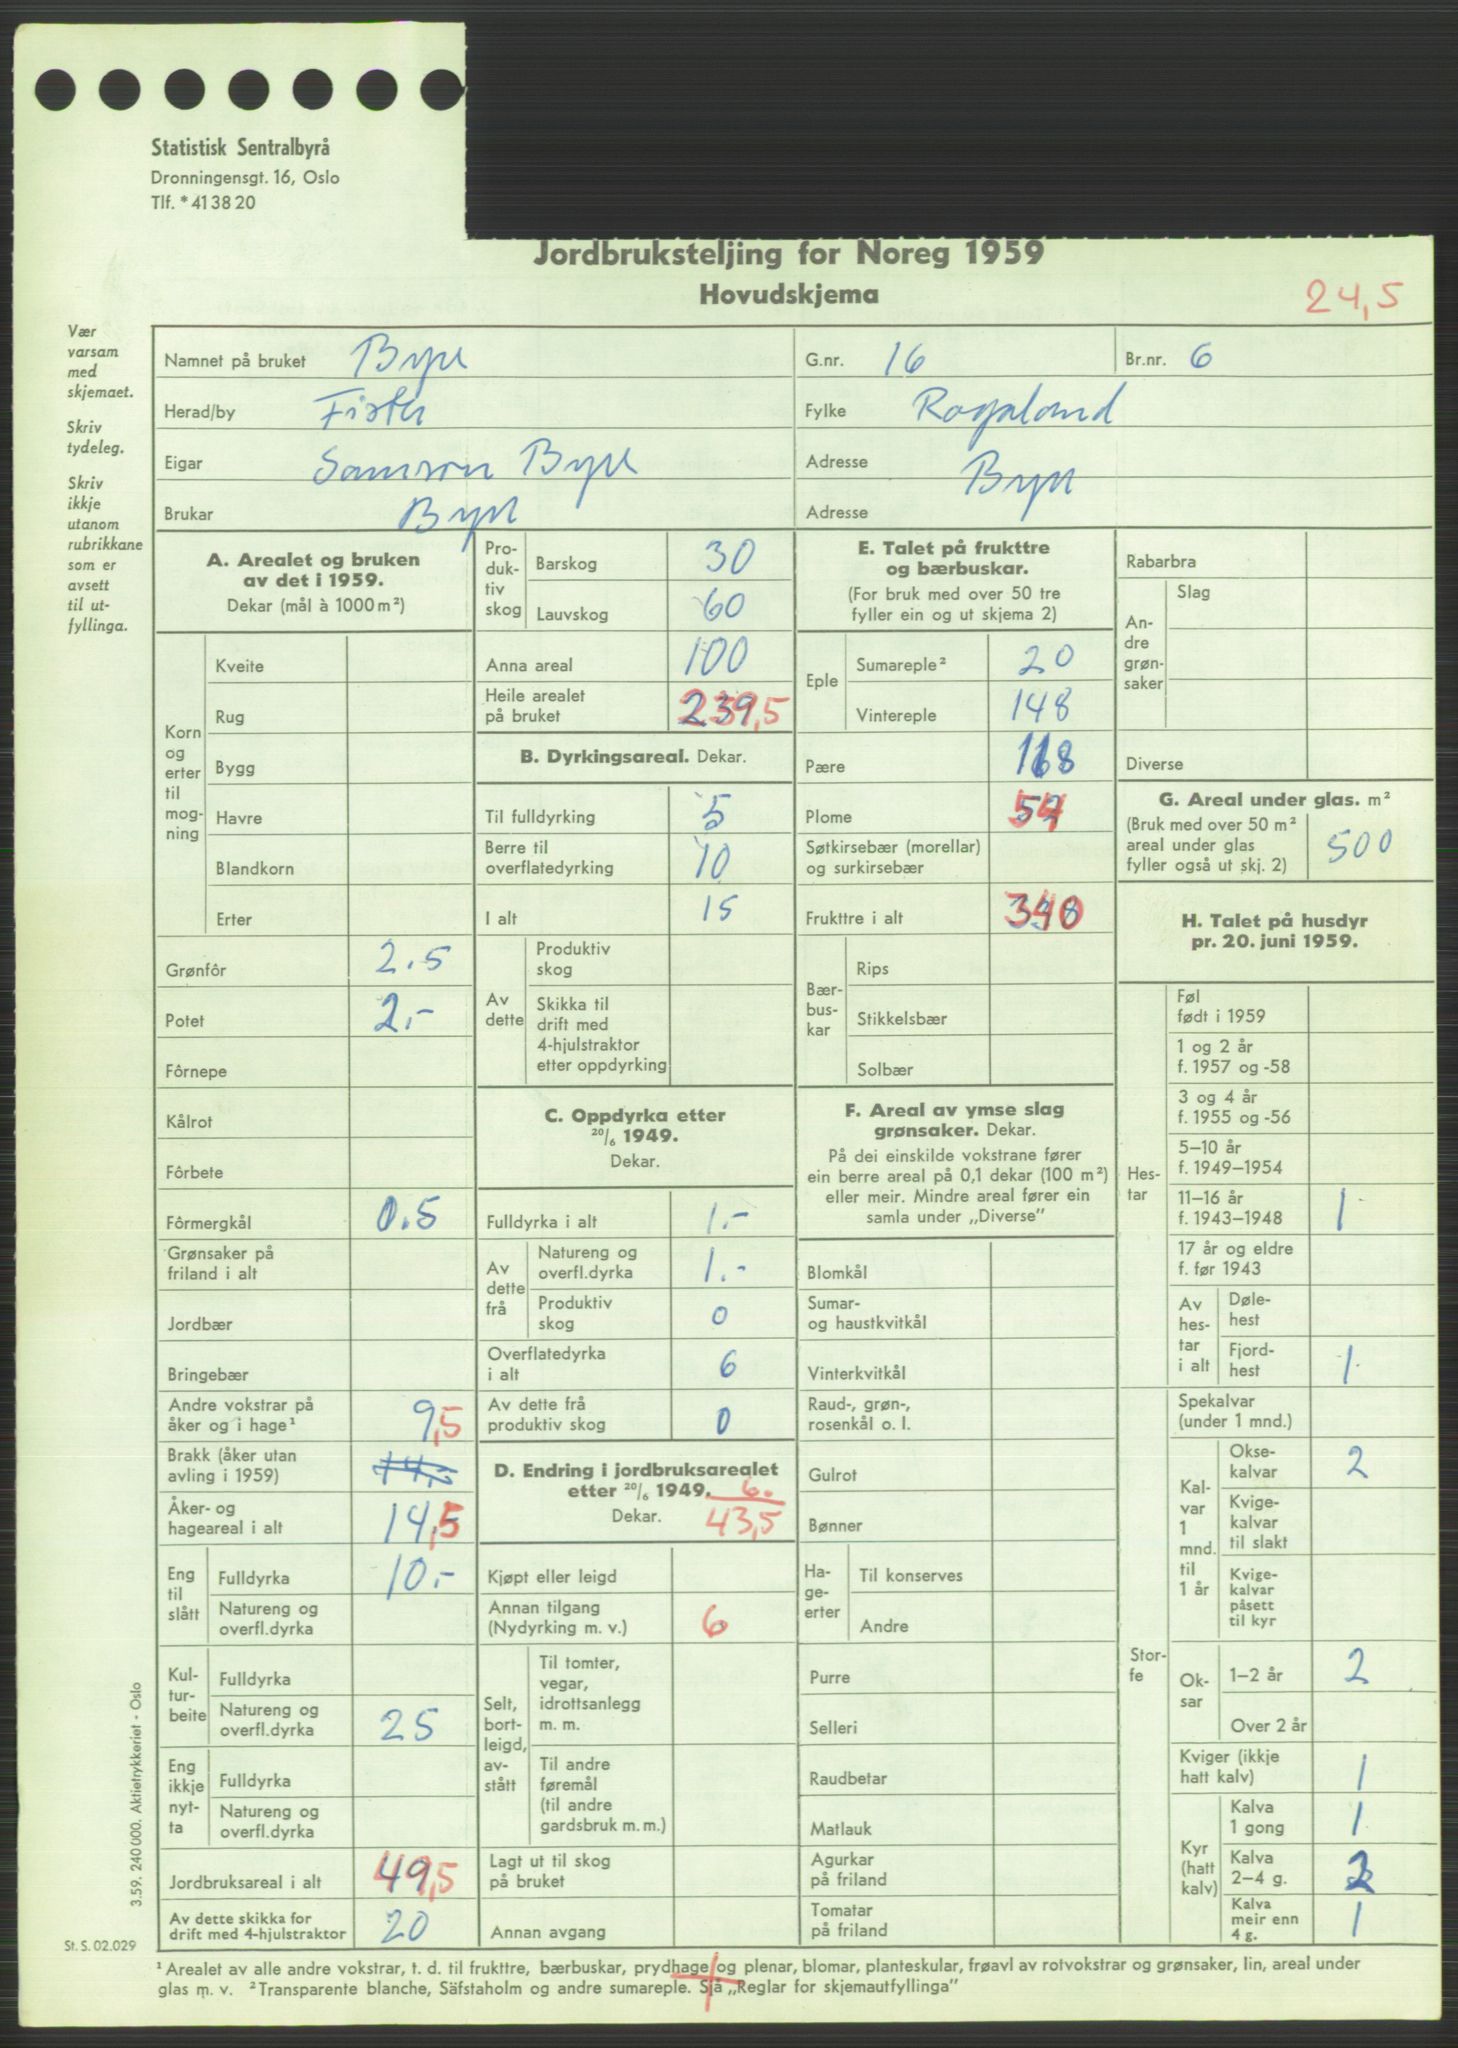 Statistisk Sentralbyrå
Dronningensgt. 16, Oslo
Tlf. * 41 38 20
Jordbruksteljing for Noreg 1959
Hovudskjema
24,5
Vær
varsam
med
skjemaet.
Skriv
tydeleg.
Skriv
ikkje
utanom
rubrikkane
som er
avsett
til ut-
fyllinga.
Namnet på bruket Byre
G.nr. 16
Br.nr. 6
Herad/by Fister
Fylke Rogaland
Eigar Samson Byre
Adresse Byre
Brukar Byre
Adresse
A. Arealet og bruken
av det i 1959.
Dekar (mål à 1000 m²)
Korn
og
erter
til
mog-
ning
Kveite
Rug
Bygg
Havre
Blandkorn
Erter
Grønfôr 2.5
Potet 2.-
Fôrnepe
Kålrot
Fôrbete
Fôrmergkål 0.5
Grønsaker på
friland i alt
Jordbær
Bringebær
Andre vokstrar på
åker og i hage¹ 9,5
Brakk (åker utan
avling i 1959)
Åker- og
hageareal i alt 14,5
Eng
til
slått
Fulldyrka 10.-
Natureng og
overfl.dyrka
Kul-
tur-
beite
Fulldyrka
Natureng og
overfl.dyrka 25
Eng
ikkje
nyt-
ta
Fulldyrka
Natureng og
overfl.dyrka
Jordbruksareal i alt 49,5
Av dette skikka for
drift med 4-hjulstraktor 20
Pro-
duk-
tiv
skog
Barskog 30
Lauvskog 60
Anna areal 100
Heile arealet
på bruket 239,5
B. Dyrkingsareal. Dekar.
Til fulldyrking 5
Berre til
overflatedyrking 10
I alt 15
Av
dette
Produktiv
skog
Skikka til
drift med
4-hjulstraktor
etter oppdyrking
C. Oppdyrka etter
20/6 1949.
Dekar.
Fulldyrka i alt 1.-
Av
dette
frå
Natureng og
overfl.dyrka 1.-
Produktiv
skog 0
Overflatedyrka
i alt 6
Av dette frå
produktiv skog 0
D. Endring i jordbruksarealet
etter 20/6 1949. 6.
Dekar. 43,5
Kjøpt eller leigd
Annan tilgang
(Nydyrking m. v.) 6
Selt,
bort-
leigd,
av-
stått
Til tomter,
vegar,
idrottsanlegg
m. m.
Til andre
føremål
(til andre
gardsbruk m. m.)
Lagt ut til skog
på bruket
Annan avgang
E. Talet på frukttre
og bærbuskar.
(For bruk med over 50 tre
fyller ein og ut skjema 2)
Eple
Sumareple² 20
Vintereple 148
Pære 118
Plome 54
Søtkirsebær (morellar)
og surkirsebær
Frukttre i alt 340
Bær-
bus-
kar
Rips
Stikkelsbær
Solbær
F. Areal av ymse slag
grønsaker. Dekar.
På dei einskilde vokstrane fører
ein berre areal på 0,1 dekar (100 m²)
eller meir. Mindre areal fører ein
samla under „Diverse”
Blomkål
Sumar-
og haustkvitkål
Vinterkvitkål
Raud-, grøn-,
rosenkål o. l.
Gulrot
Bønner
Ha-
ge-
erter
Til konserves
Andre
Purre
Selleri
Raudbetar
Matlauk
Agurkar
på friland
Tomatar
på friland
Rabarbra
An-
dre
grøn-
saker
Slag
Diverse
G. Areal under glas. m²
(Bruk med over 50 m²
areal under glas
fyller også ut skj. 2) 500
H. Talet på husdyr
pr. 20. juni 1959.
Hes-
tar
Føl
født i 1959
1 og 2 år
f. 1957 og -58
3 og 4 år
f. 1955 og -56
5–10 år
f. 1949–1954
11–16 år
f. 1943–1948 1
17 år og eldre
f. før 1943
Av
hes-
tar
i alt
Døle-
hest
Fjord-
hest 1
Stor-
fe
Spekalvar
(under 1 mnd.)
Kal-
var
1
mnd.
til
1 år
Okse-
kalvar 2
Kvige-
kalvar
til slakt
Kvige-
kalvar
påsett
til kyr
Ok-
sar
1–2 år 2
Over 2 år
Kviger (ikkje
hatt kalv) 1
Kyr
(hatt
kalv)
Kalva
1 gong 1
Kalva
2–4 g. 2
Kalva
meir enn
4 g. 1
3.59. 240 000. Aktietrykkeriet - Oslo
St. S. 02.029
¹ Arealet av alle andre vokstrar, t. d. til frukttre, bærbuskar, prydhage og plenar, blomar, planteskular, frøavl av rotvokstrar og grønsaker, lin, areal under
glas m. v. ² Transparente blanche, Säfstaholm og andre sumareple. Sjå „Reglar for skjemautfyllinga”